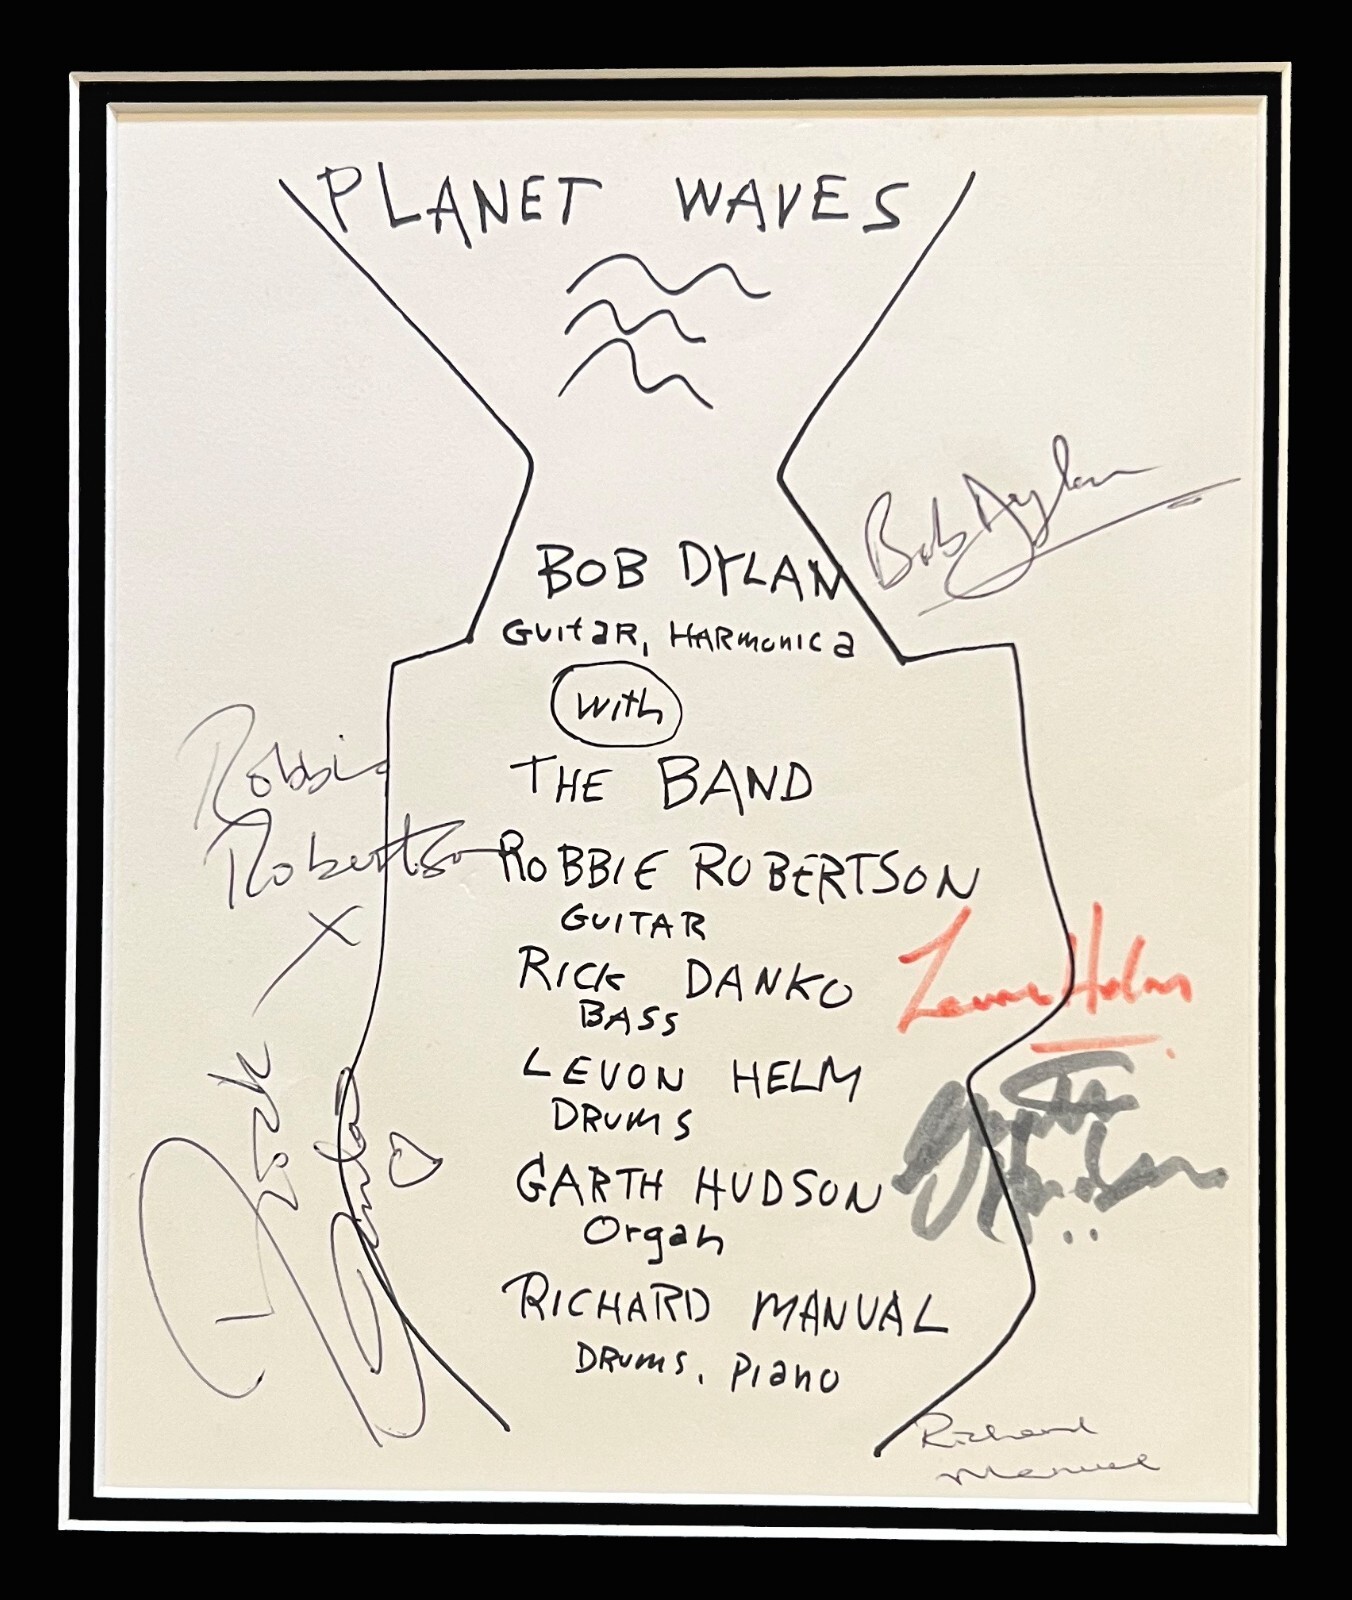 PLANET WAVES
Bob Dylan
BOB DYLAN
GuitaR, HARmonica
With
THE BAND
Robbie
Robertson
x
ROBBIE ROBERTSON
GUITAR
RICK DANKO
BASS
Levon Helm
LEVON HELM
DRUMS
Rick Danko
Garth Hudson
GARTH HUDSON
Organ
RICHARD MANUAL
DRUMS, Piano
Richard
Manuel